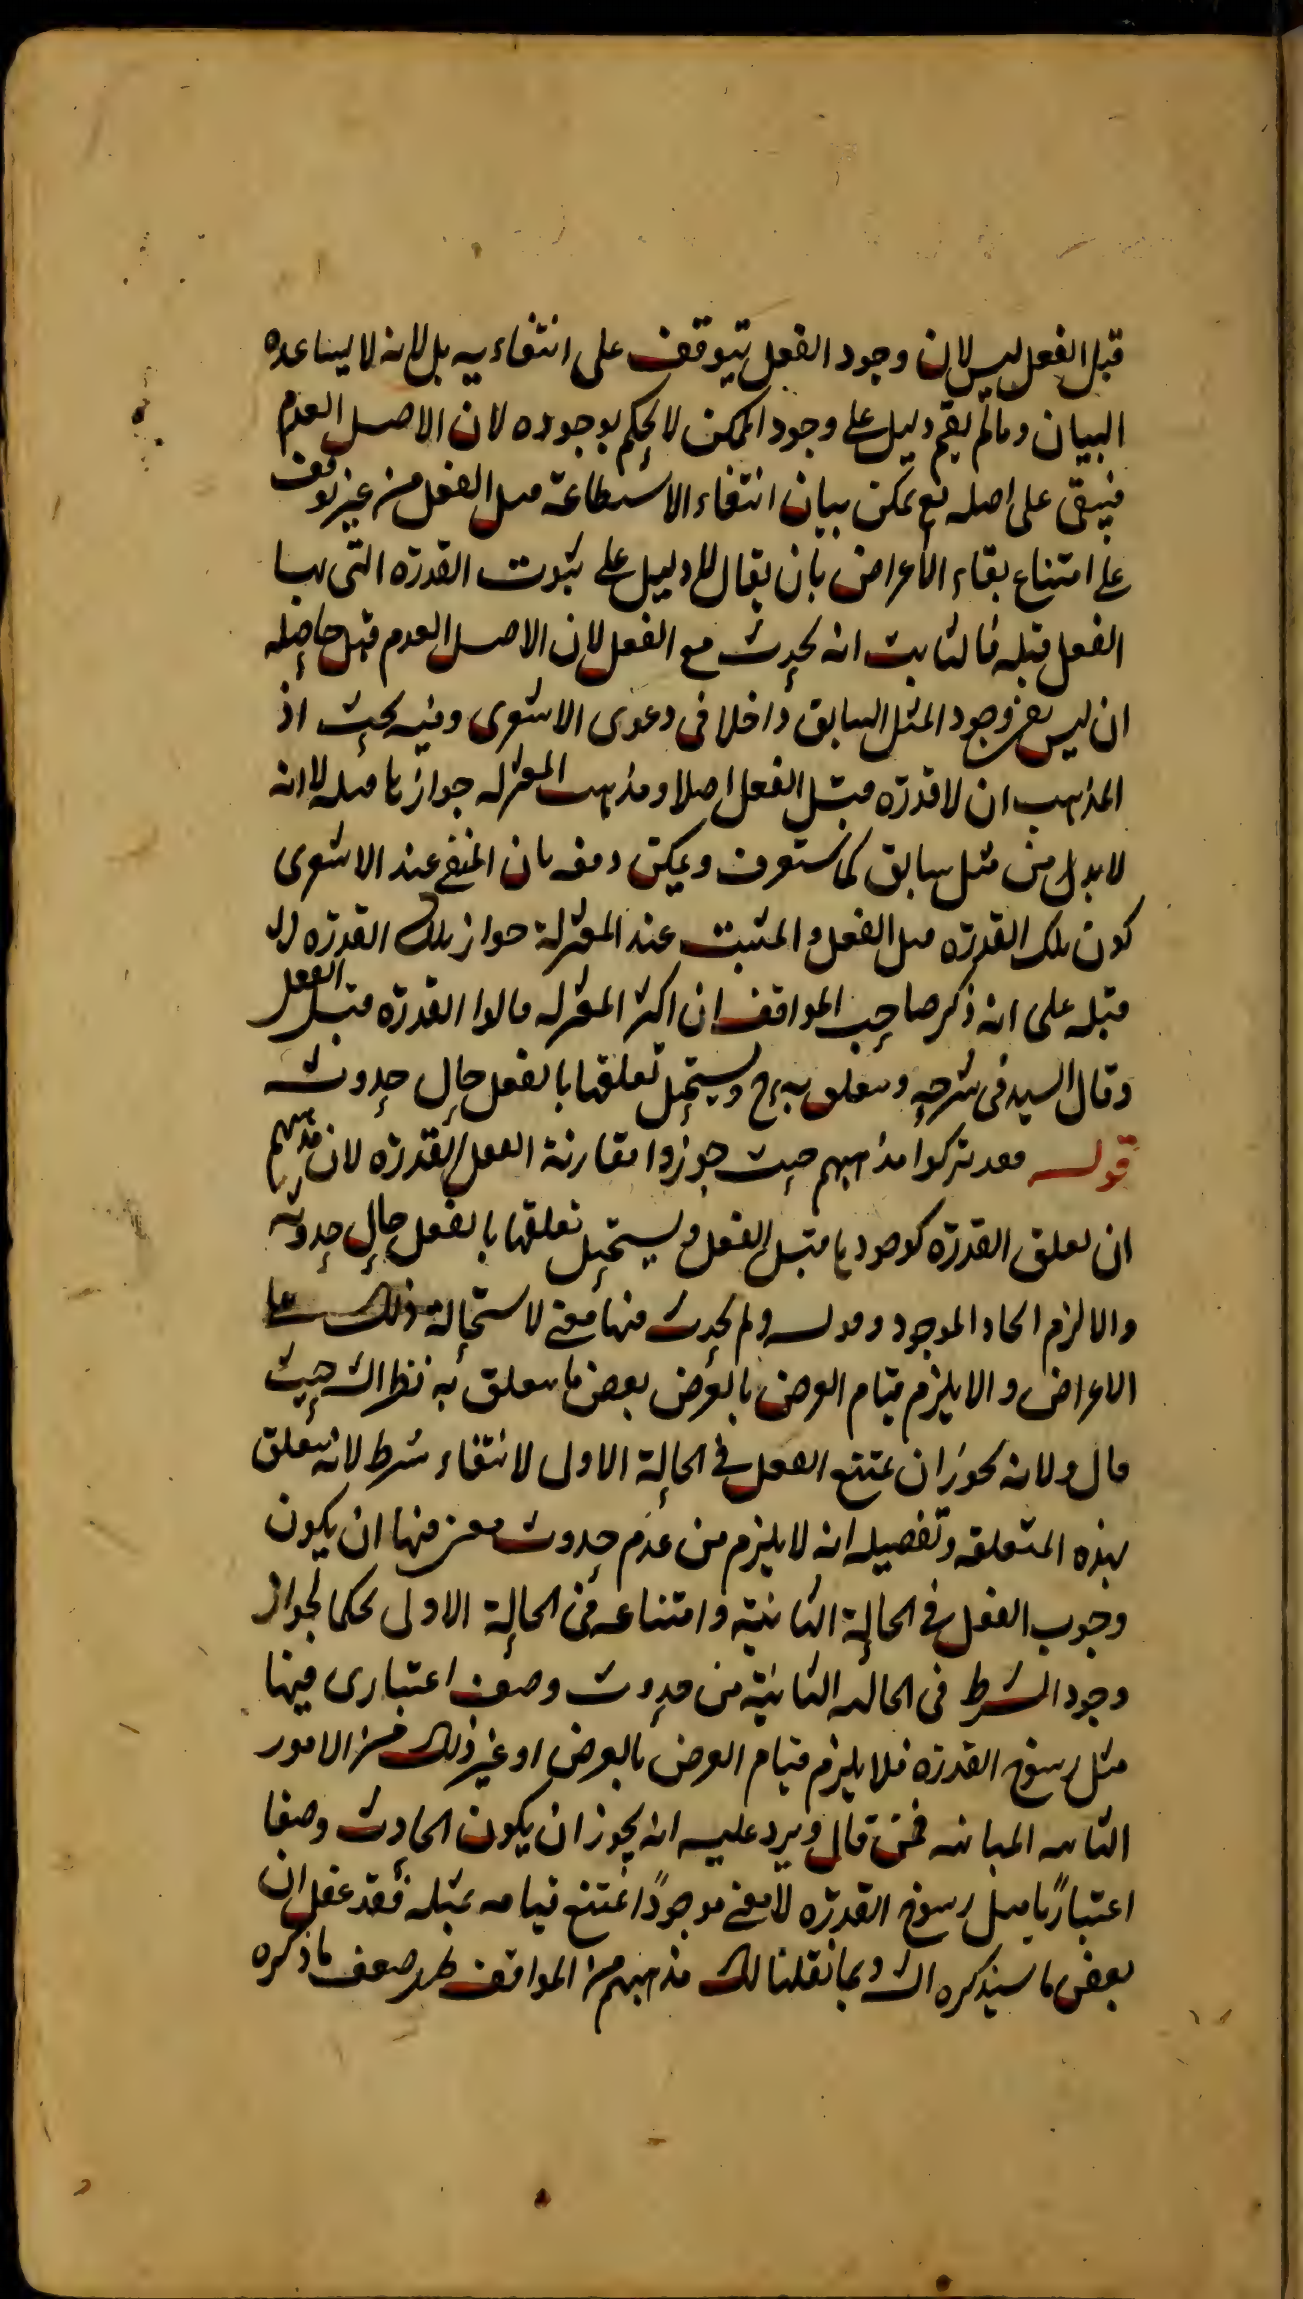 قبل الفعل ليس لان وجود الفعل يتوقف على انتفاءيه بل لانه لا يساعده
البيان وما لم يقم دليل على وجود الممكن لا يحكم بوجوده لان الاصل العدم
فيبقى على اصله نعم يمكن بيان انتفاء الاستطاعة قبل الفعل من غير توقف
على امتناع بقاء الاعراض بأن يقال لا دليل على ثبوت القدرة التى بها
الفعل قبله فالثابت انه يحدث مع الفعل لان الاصل العدم قيل حاصله
ان ليس نفى وجود المثل السابق داخلا فى دعوى الاشعرى وفيه بحث اذ
المذهب ان لا قدرة قبل الفعل اصلا ومذهب المعتزلة جوازها قبله لا انه
لا بد له من مثل سابق كما ستعرف ويمكن دفعه بان المنفى عند الاشعرى
كون تلك القدرة قبل الفعل والمثبت عند المعتزلة جواز تلك القدرة
قبله على انه ذكر صاحب المواقف ان اكثر المعتزله قالوا القدرة قبل الفعل
وقال السيد فى شرحه وتتعلق به ح ويستحيل تعلقها بالفعل حال حدوثه
قوله فقد تركوا مذاهبهم حيث جوزوا مقارنة الفعل القدرة لان مذهبهم
ان تعلق القدرة كوجودها قبل الفعل ويستحيل تعلقها بالفعل حال حدوثه
والا لزم ايجاد الموجود وقوله ولم يحدث فيها معنى لاستحالة ذلك على
الاعراض والا يلزم قيام العرض بالعرض بعض ما يتعلق به نظر الش حيث
قال ولانه يجوز ان يمتنع الفعل فى الحالة الاولى لانتفاء شرط لانه يتعلق
بهذه المتعلقه وتفصيله انه لا يلزم من عدم حدوث معنى فيها ان يكون
وجوب الفعل فى الحالة الثانية وامتناعه فى الحالة الاولى تحكما لجواز
وجود الشرط فى الحاله الثانية من حدوث وصف اعتبارى فيها
مثل رسوخ القدرة فلا يلزم قيام العرض بالعرض او غير ذلك من الامور
المباينه فمن قال ويرد عليه انه يجوز ان يكون الحادث وصفا
اعتباريا مثل رسوخ القدرة لا معنى موجودًا يمتنع قيامه بمثله فقد غفل ان
بعض ما سيذكره الش وبما نقلنا لك مذهبهم من المواقف ظهر ضعف ما ذكره